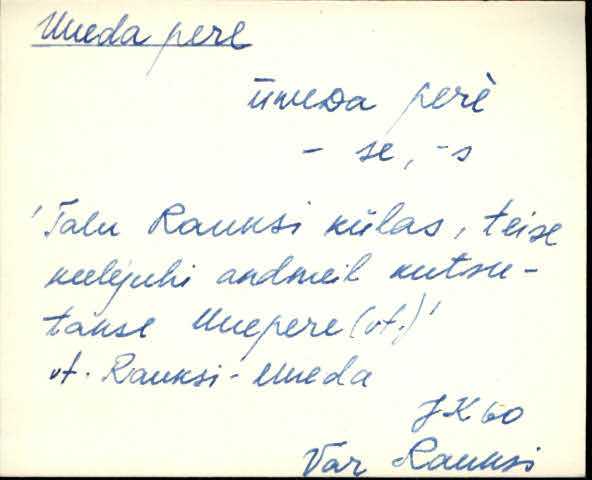 Uueda pere
ūweDa perè
- se, -s
'Talu Rauksi külas, teise
keelejuhi andmeil kutsu-
takse Uuepere (vt.)'
vt. Rauksi-Uueda
JK 60
Var Rauksi